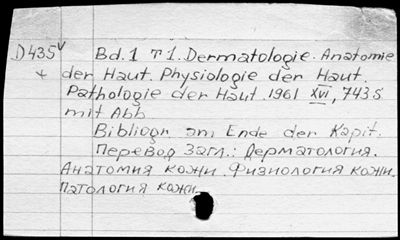 D435v Bd.1 T1. Dermatologie. Anatomie
* der Haut. Physiologie der Haut.
Pathologie der Haut. 1961 XVI, 743 S
mit Abb
Bibliogr. am Ende der Kapit.
Перевод Загл.: Дерматология.
Анатомия кожи. Физиология кожи.
Патология кожи.